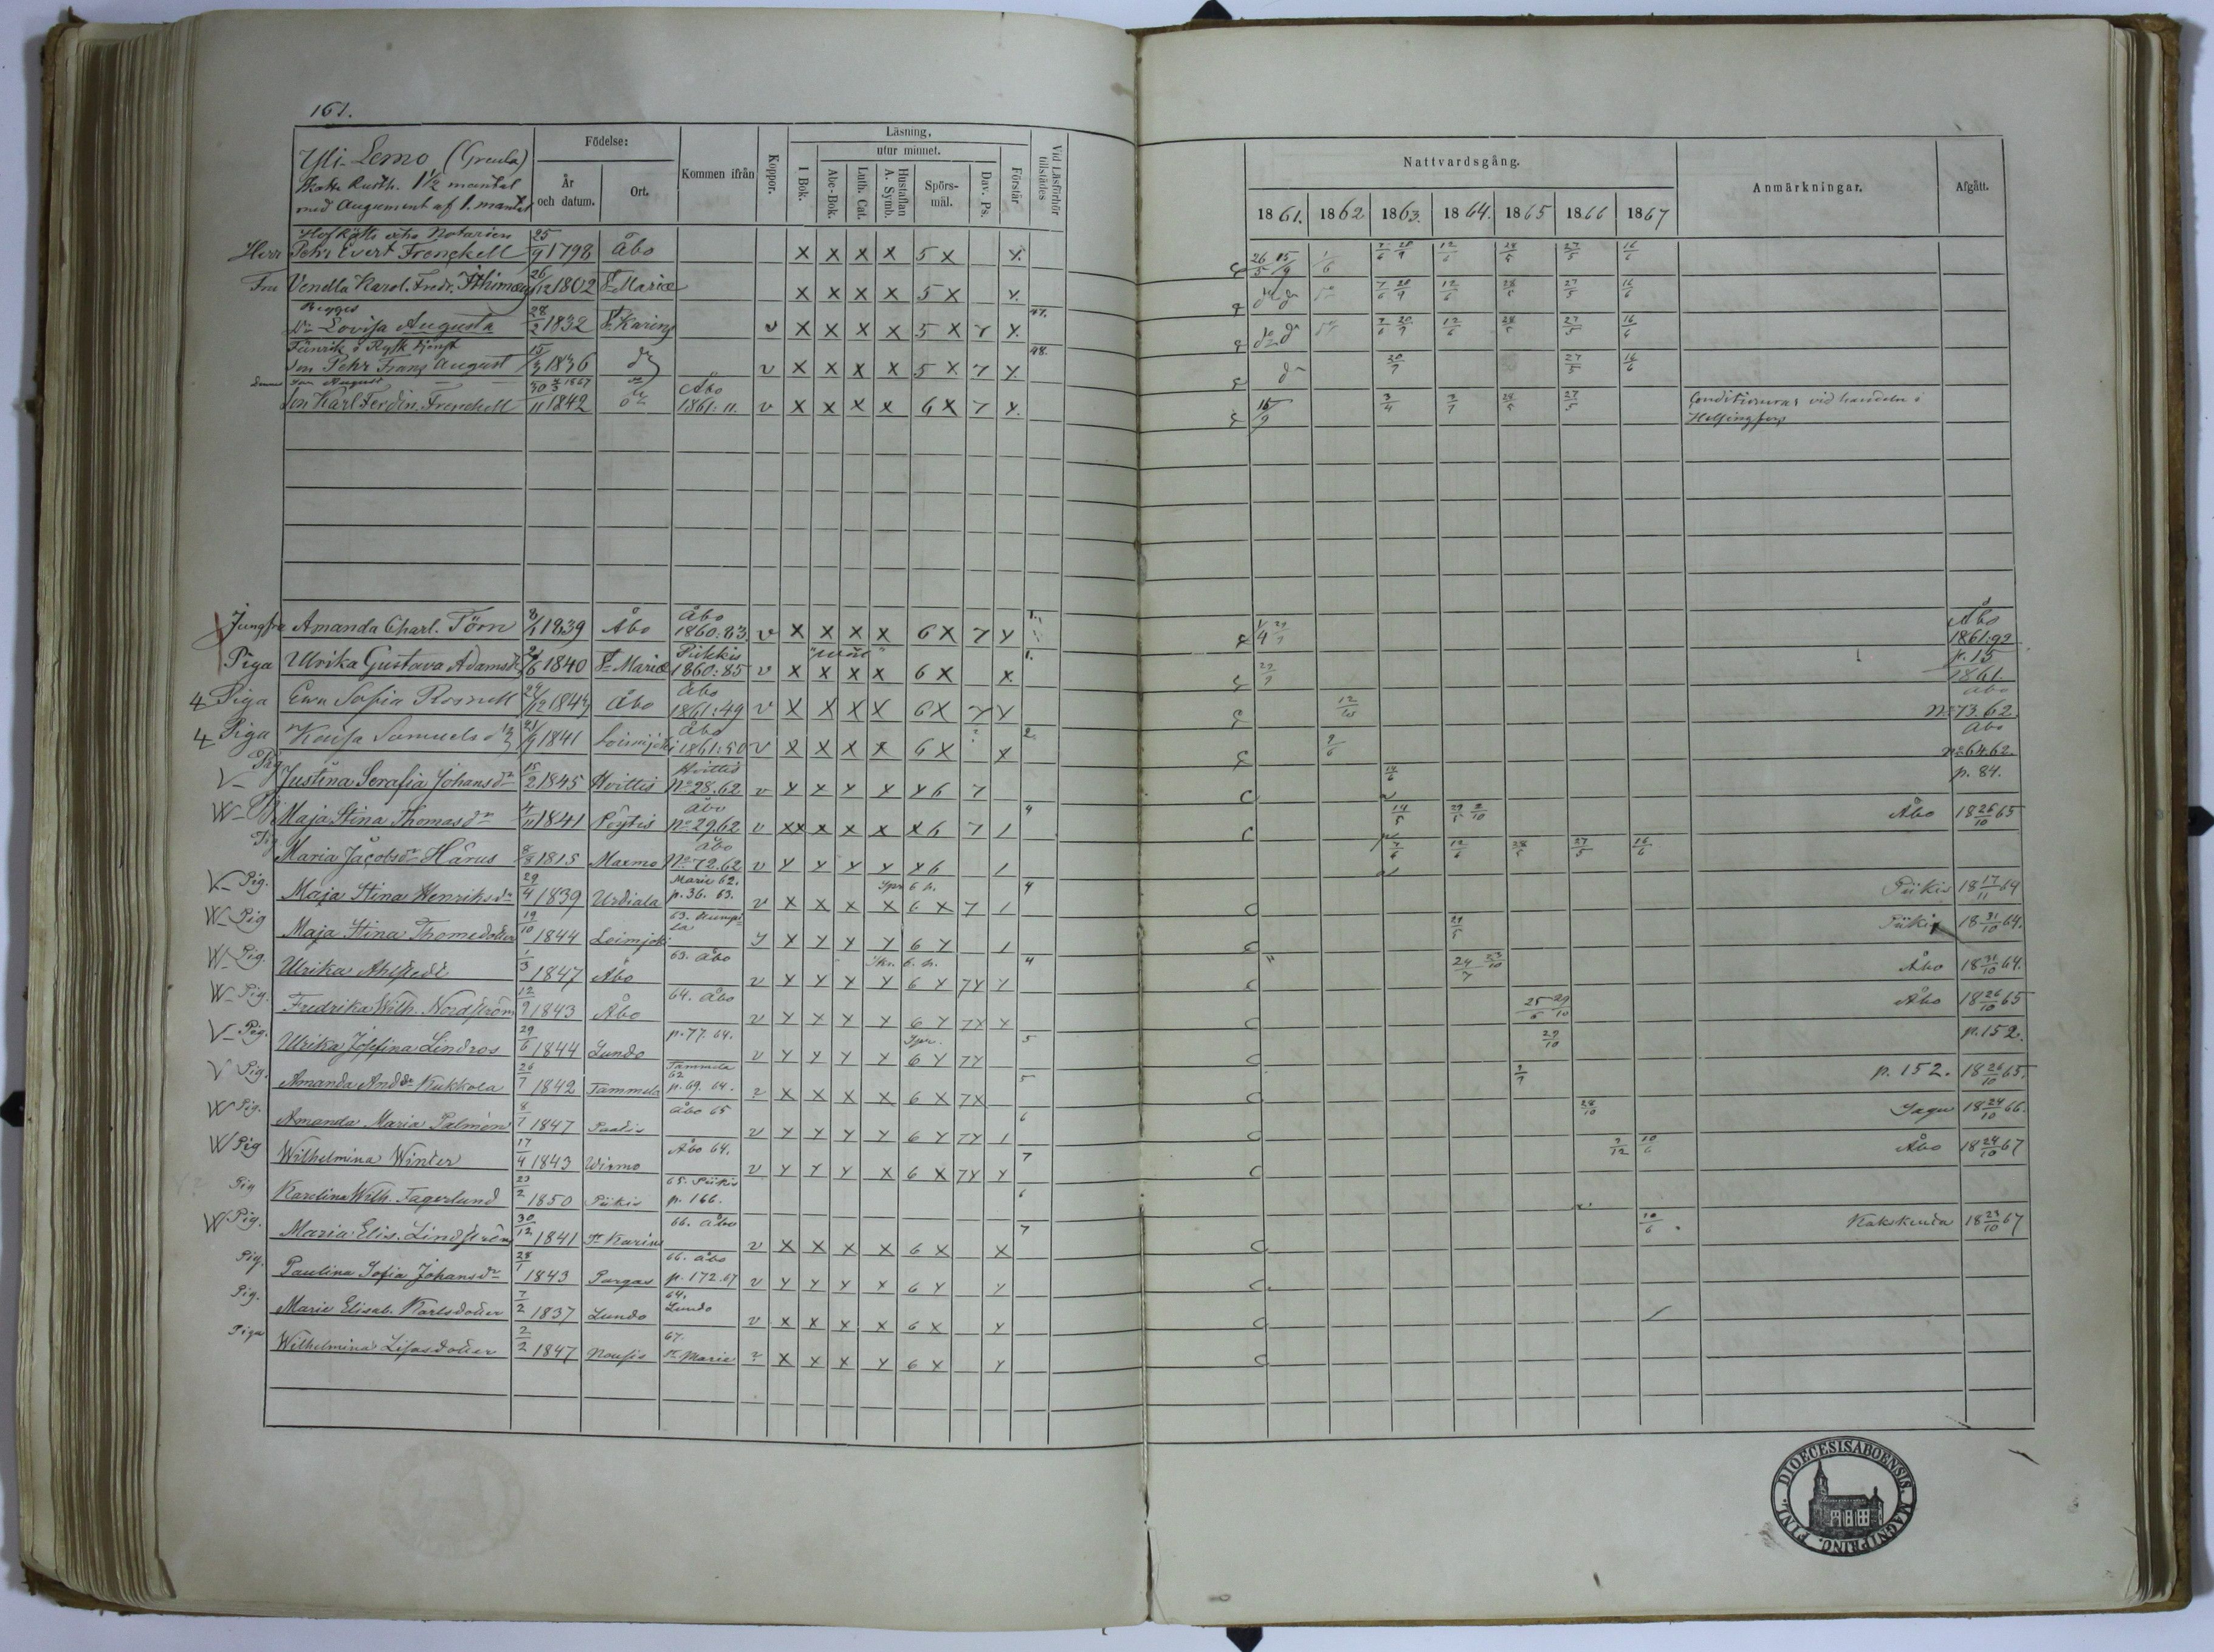 161.
Yli-Lemo (Greula)
Skatte Rusth. 1 1/2 mantal
med Augument af 1. mantal
Födelse:
År och datum.
Ort.
Kommen ifrån
Koppor.
Läsning,
utur minnet.
I Bok.
Abc-Bok.
Luth. Cat.
Hustaflan A. Symb.
Spörs-mål.
Dav. Ps.
Förstår
Vid Läsförhör tillstädes
Nattvardsgång.
1861. 1862 1863. 1864. 1865 1866 1867
Anmärkningar.
Afgått.
Hofrätts Notarien
Herr Pehr Evert Frenckell 25/9 1798 Åbo X X X X 5 X 26/5 15/9 1/6 7/6 12/6 28/5 27/5 16/6
Fru Vendla Karol. Fredr. 26/12 1802 St Mariæ X X X X 5 X 7/6 12/6 28/5 27/5 16/6
Dr Lovisa Augusta 28/2 1832 St Karins v X X X X 5 X 7 47. 7/6 12/6 28/5 27/5 16/6
Fänrik i Rysk tjenst
Son Pehr Frans August 15/3 1836 v X X X X 5 X 7 48. 27/5 16/6
Son Karl Ferdin. Frenckell 30/11 1842 Åbo 1861:11. v X X X X 6 X 7 15/9 3/4 28/5 27/5 Conditionerar vid handeln i
Helsingfors
Jungfru Amanda Charl. Törn 1839 Åbo Åbo 1860:83 v X X X X 6 X 7 1. Åbo 1861:92
Piga Ulrika Gustava Adamsdr 1840 St Mariæ Pikkis 1860:85 v X X X X 6 X X 1. p. 15 1861.
4 Piga Ewa Sofia Rosnell 24/12 1844 Åbo Åbo 1861:49 v X X X X 6 X 7 12/10 Åbo No 73.62
4 Piga Lovisa Samuelsdr 1841 Loimijoki Åbo 1861:50 v X X X X 6 X ? X 2. 9/6 Åbo No 64.62.
V- Pig Justina Serafia Johansdr 15/2 1845 Hvittis Hvittis No 28.62 v X X X X X 6 7 14/6 p. 84.
W- Pi Maja Stina Thomasdr 4/11 1841 Pöytis Åbo No 29.62 v X X X X X 6 7 1 4 14/5 29/5 2/10 Åbo 18 26/10 65
Pig Maria Jacobsdr Hârus 8/8 1815 Maxmo Åbo No 72.62 v X X X X X 6 1 7/6 12/6 28/5 27/5 16/6
V- Pig. Maja Stina Henriksdr 29/4 1839 Urdiala Marie 62. p. 36. 63. v X X X X 6 X 7 1 4 Piikis 18 17/11 64
W- Pig Maja Stina Thomedotter 19/10 1844 Loimjoki 63. Humppila X X X X 6 X 1 29/5 Piikis 18 31/10 64.
W- Pig. Ulrika Ahlstedt 1/3 1847 Åbo 63. Åbo v X X X X 6 X 7 X X 4 24/7 23/10 Åbo 18 31/10 64.
W- Pig. Fredrika Wilh. Nordström 12/9 1843 Åbo 64. Åbo v X X X X 6 X 7 X X 25/6 29/10 Åbo 18 26/10 65
V- Pig. Ulrika Josefina Lindros 29/6 1844 Lundo p. 77. 64. v X X X X 6 X 7 X 5 29/10 p. 152.
V Pig. Amanda Anddr Kukkola 26/7 1842 Tammela Tammela 62 p. 69. 64. ? X X X X 6 X 7 X 5 p. 152. 18 26/10 65.
W Pig. Amanda Maria Palmén 8/7 1847 Paatis Åbo 65 v X X X X 6 X 7 X 1 6 28/10 Sagu 18 24/10 66.
W Pig Wilhelmina Winter 17/4 1843 Wirmo Åbo 64. v X X X X 6 X 7 X X 7 2/12 10/6 Åbo 18 24/10 67
Pig Karolina Wilh. Fagerlund 23/2 1850 Piikis 65. Piikis p. 166. 6
W Pig. Maria Elis. Lindström 30/12 1841 St Karins 66. Åbo v X X X X 6 X X 7 10/6 Kakskerta 18 24/10 67
Pig. Paulina Sofia Johansdr 28/1 1843 Pargas 66. Åbo p. 172.67 v X X X X 6 X X
Pig. Marie Elisab. Karlsdotter 7/2 1837 Lundo 64. Lundo v X X X X 6 X X
Piga Wilhelmina Lisasdotter 2/2 1847 Nousis 67. St Marie ? X X X X 6 X X
DIOECESIS ABOENSIS. MAGNI PRINC. FINL.